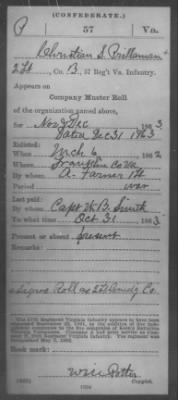 (CONFEDERATE.)
P 57 Va.
Christian S. Prillaman
2 Lt, Co. B, 57 Reg't Va. Infantry.
Appears on
Company Muster Roll
of the organization named above,
for Nov & Dec 1863.
dated Dec 31 1863
Enlisted:
When Mch 6, 1862.
Where Franklin Co Va
By whom A. Farmer Lt
Period war
Last paid:
By whom Capt W. B. Smith
To what time Oct 31, 1863.
Present or absent present
Remarks:
Signs Roll as 2 Lt Comdg Co.
Book mark:
Will Potter
Copyist.